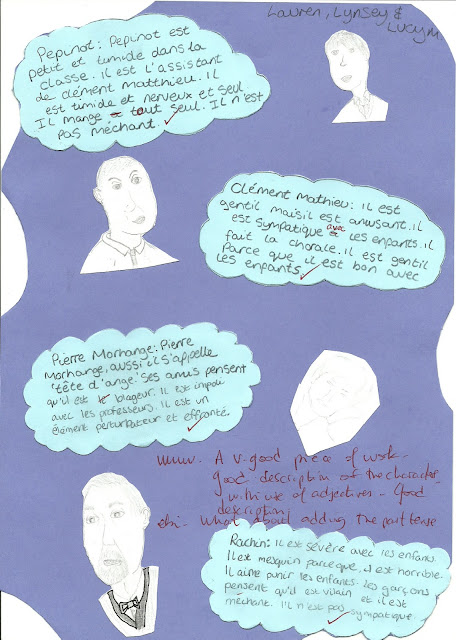 Lauren, Lynsey &
Lucy M
Pepinot: Pepinot est
petit et timide dans la
classe. il est l'assistant
de clément matthieu. il
est timide et nerveux et seul
Il mange tout seul. Il n'est
pas méchant.
Clément Mathieu: il est
gentil mais il est amusant. il
est sympatique avec les enfants. il
fait la chorale. il est gentil
parce que il est bon avec
les enfants
Pierre Morhange: Pierre
Morhange, aussi il s'appelle
'tête d'ange'. Ses amis pensent
qu'il est le blageur. Il est impoli
avec les professeurs. Il est un
élément perturbateur et effronté.
www. A v. good piece of work -
good description of the characters
with use of adjectives - Good
description!
ebi - What about adding the past tense
Rachin: il est sévère avec les enfants.
Il est mesquin parceque, il est horrible.
Il aime punir les enfants. Les garçons
pensent qu'il est vilain et il est
méchant. Il n'est pas sympatique.